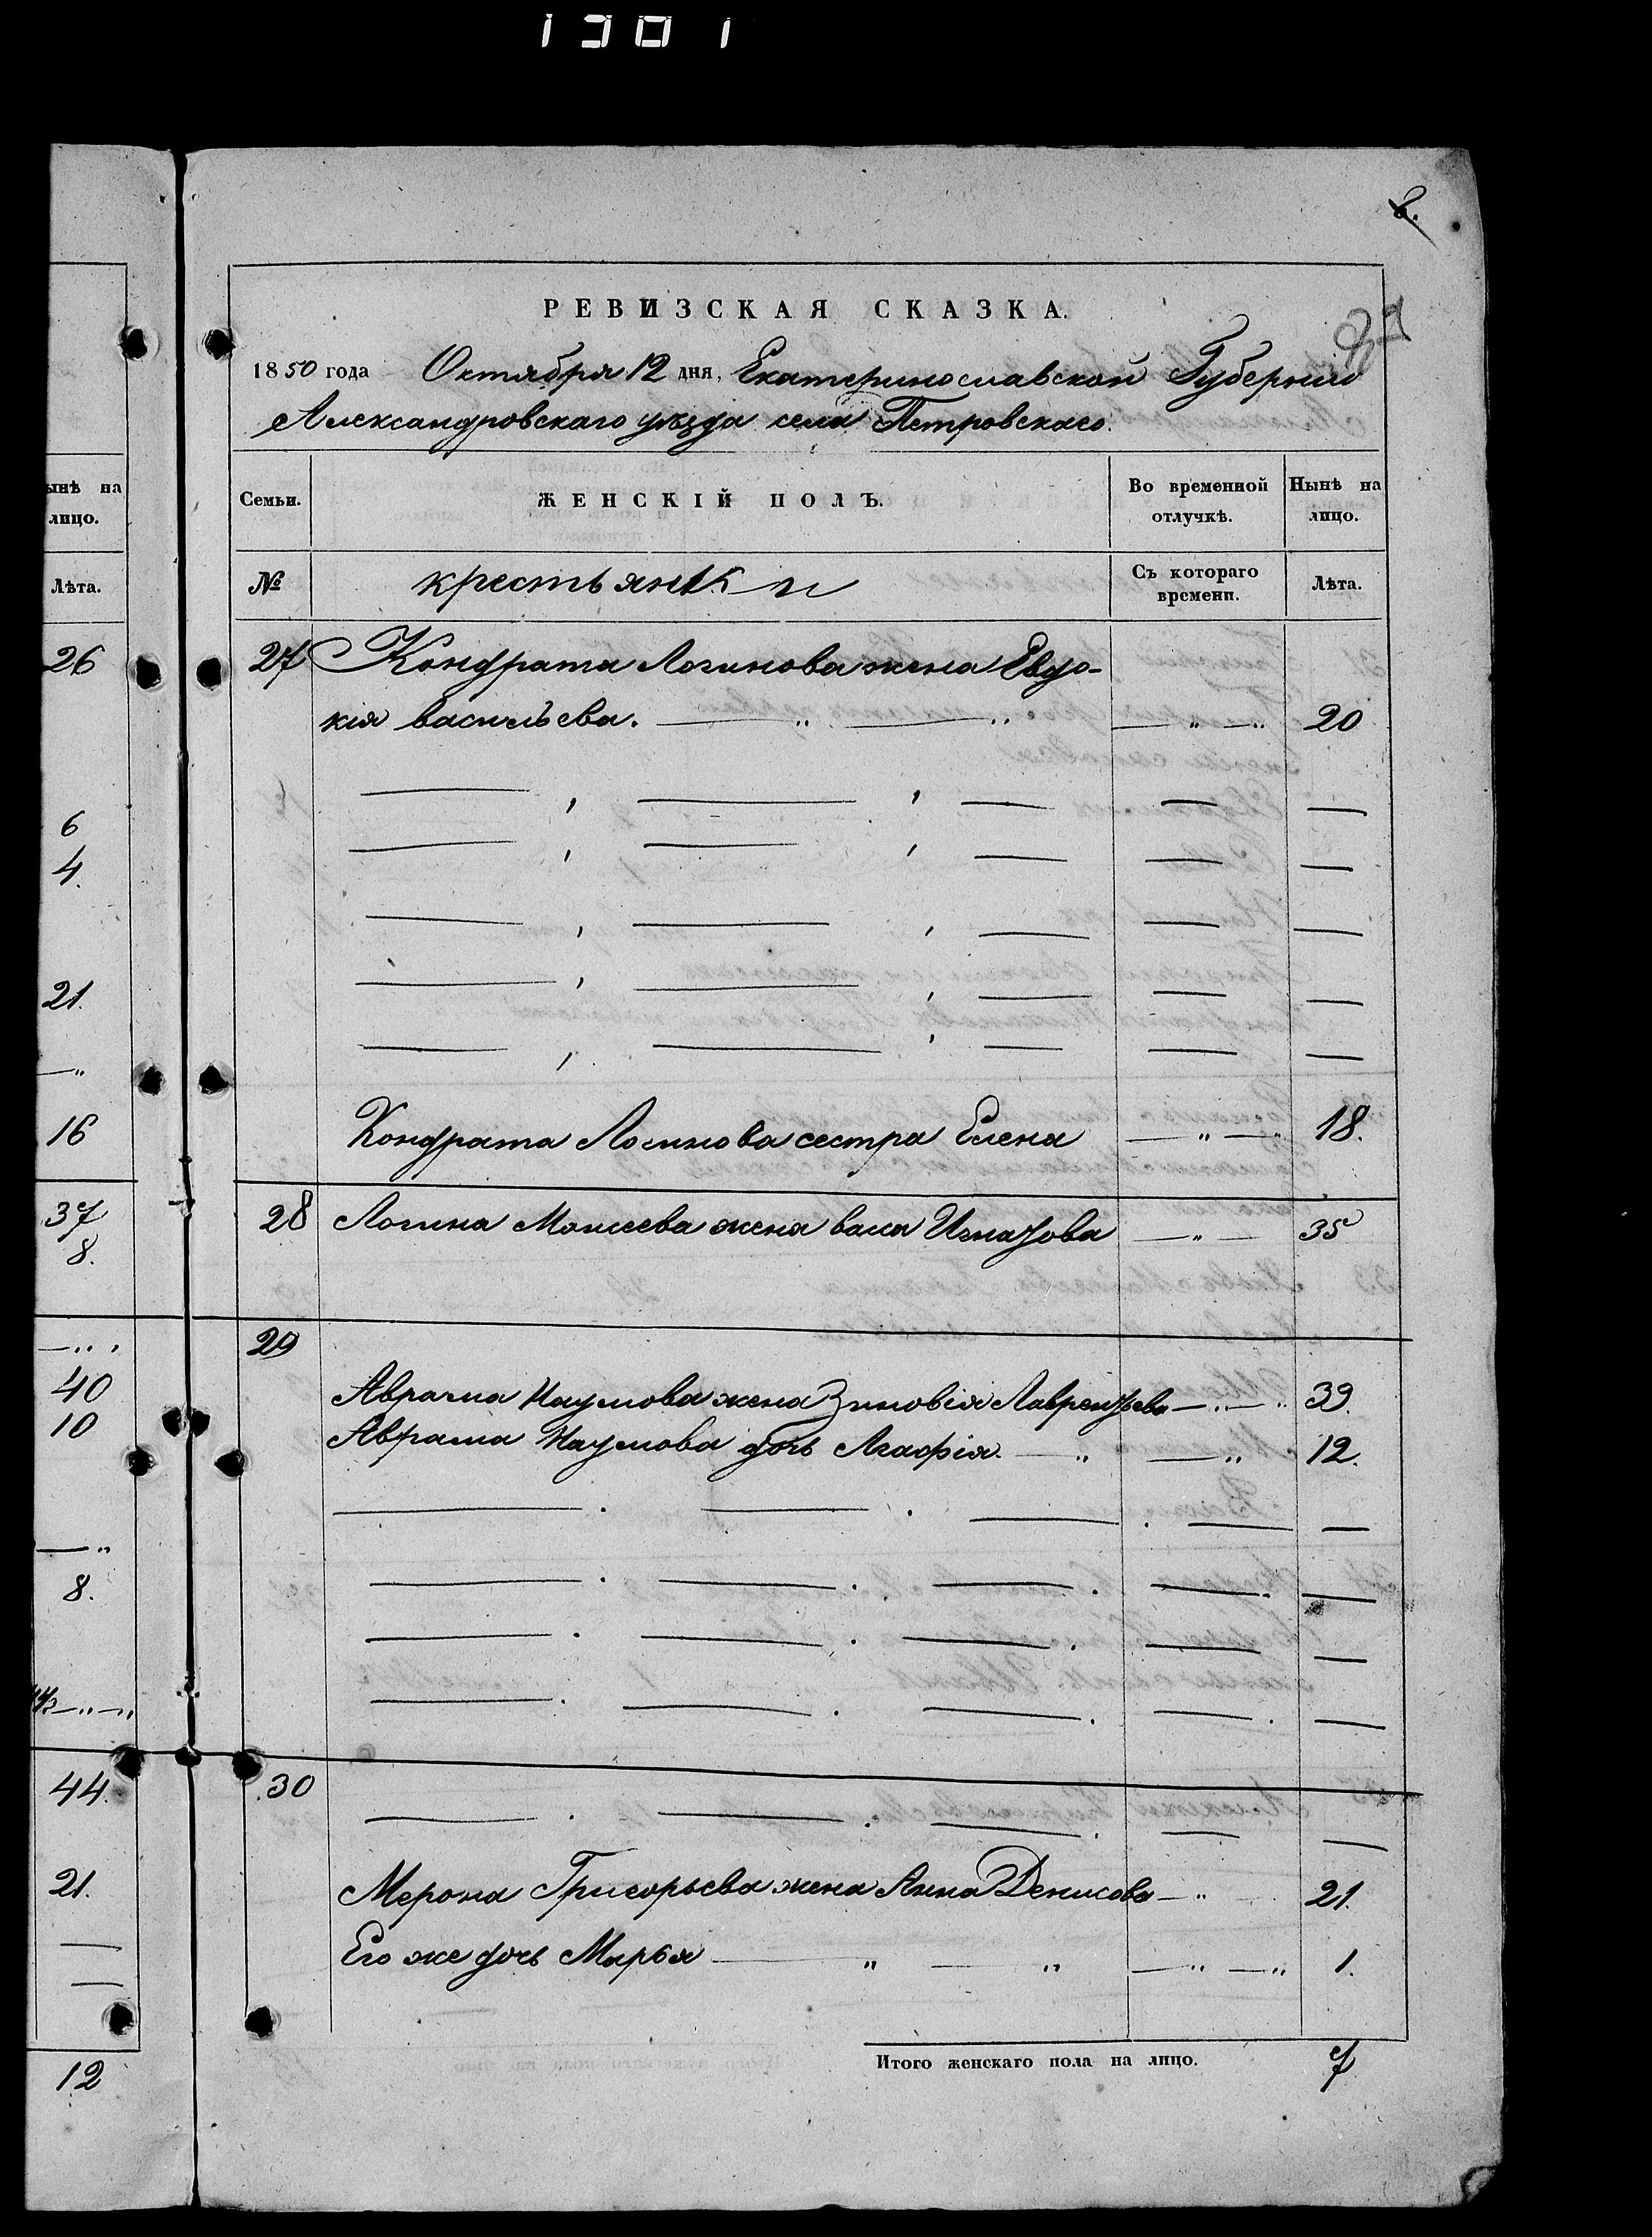 1381
8.
РЕВИЗСКАЯ СКАЗКА.
1850 года Октября 12 дня, Екатеринославской Губерніи
Александровскаго уѣзда села Петровскаго.
ынѣ на
лицо.
Лѣта.
26
6
4.
21.
— „
16
37
8.
— „ ,
40
10
— „
8.
— „ — „
44.
21.
—
—
12
Семьи. ЖЕНСКІЙ ПОЛЪ. Во временной отлучкѣ. Нынѣ на лицо.
№ крестьянки Съ котораго времени. Лѣта.
27 Кондрата Логинова жена Евдо-
кія васильева. — „ — „ — „ — „ 20
Кондрата Логинова сестра Елена — „ — „ 18.
28 Логина Моисеева жена васа Игнатова — „ — 35
29
Аврама Наумова жена Зиновія Лаврентьева — „ — „ 39.
Аврама Наумова дочь Агафія. — „ — „ 12.
30
Мерона Григорьева жена Анна Денисова — „ 21.
Его же дочь Марья — „ — „ — „ — „ 1.
Итого женскаго пола на лицо. 7